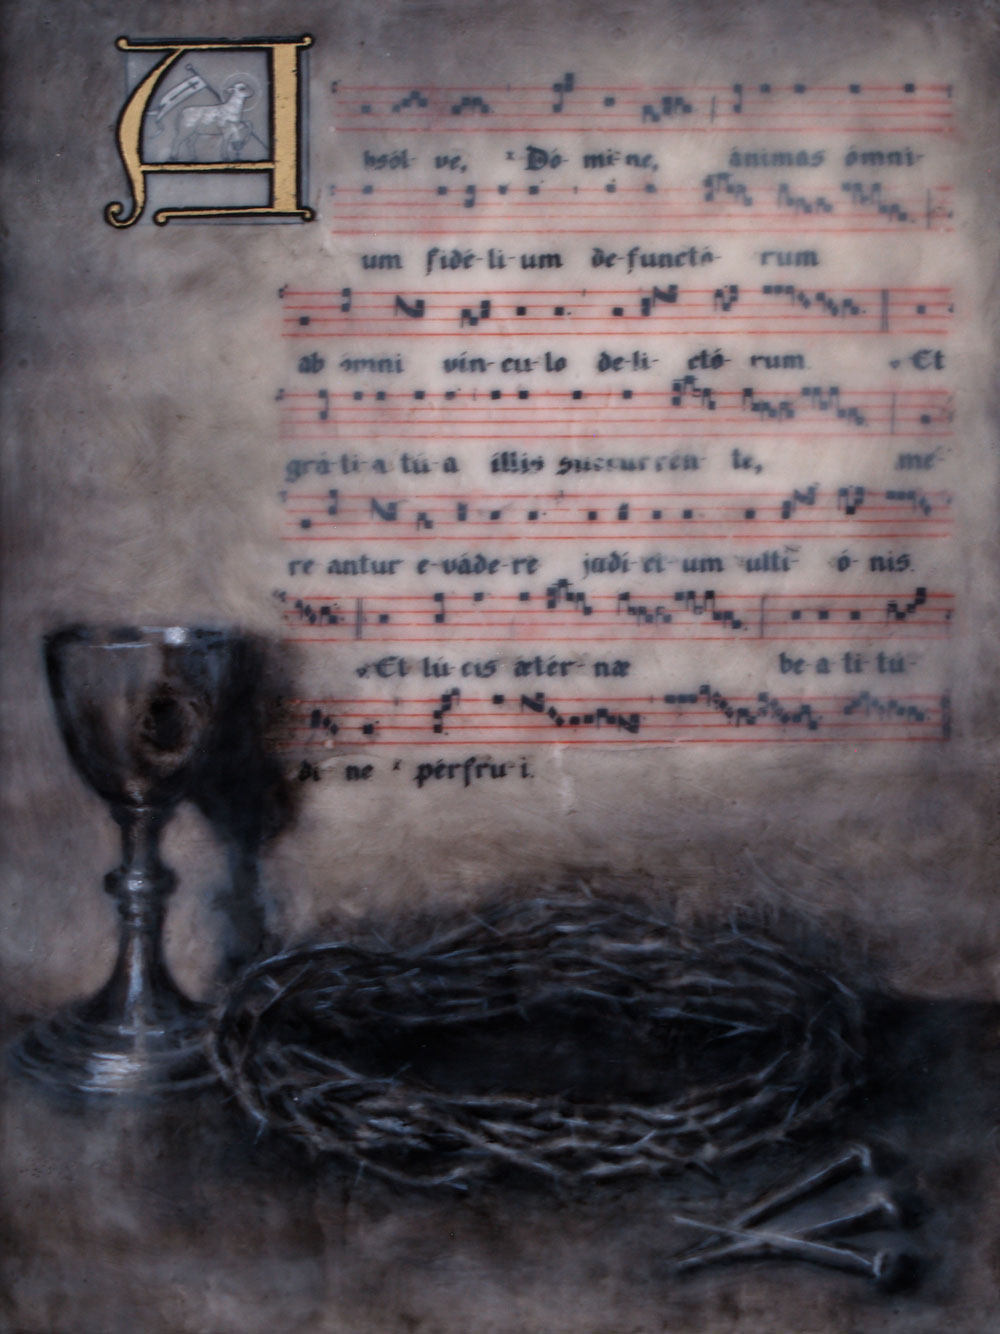 Absól- ve, Dó- mi- ne, ánimas ómni-
um fidé- li- um de- functó- rum
ab omni vín- cu- lo de- li- ctó- rum. Et
grá- ti- a tú- a illis succurrén- te, me-
re antur e- váde- re judí- ci- um ulti- ó- nis.
Et lú- cis ætér- næ be- a- ti- tú-
di- ne pérfru- i.